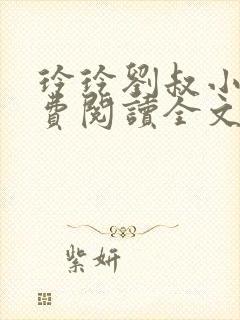 玲玲劉叔小
費閱讀全文
紫妍